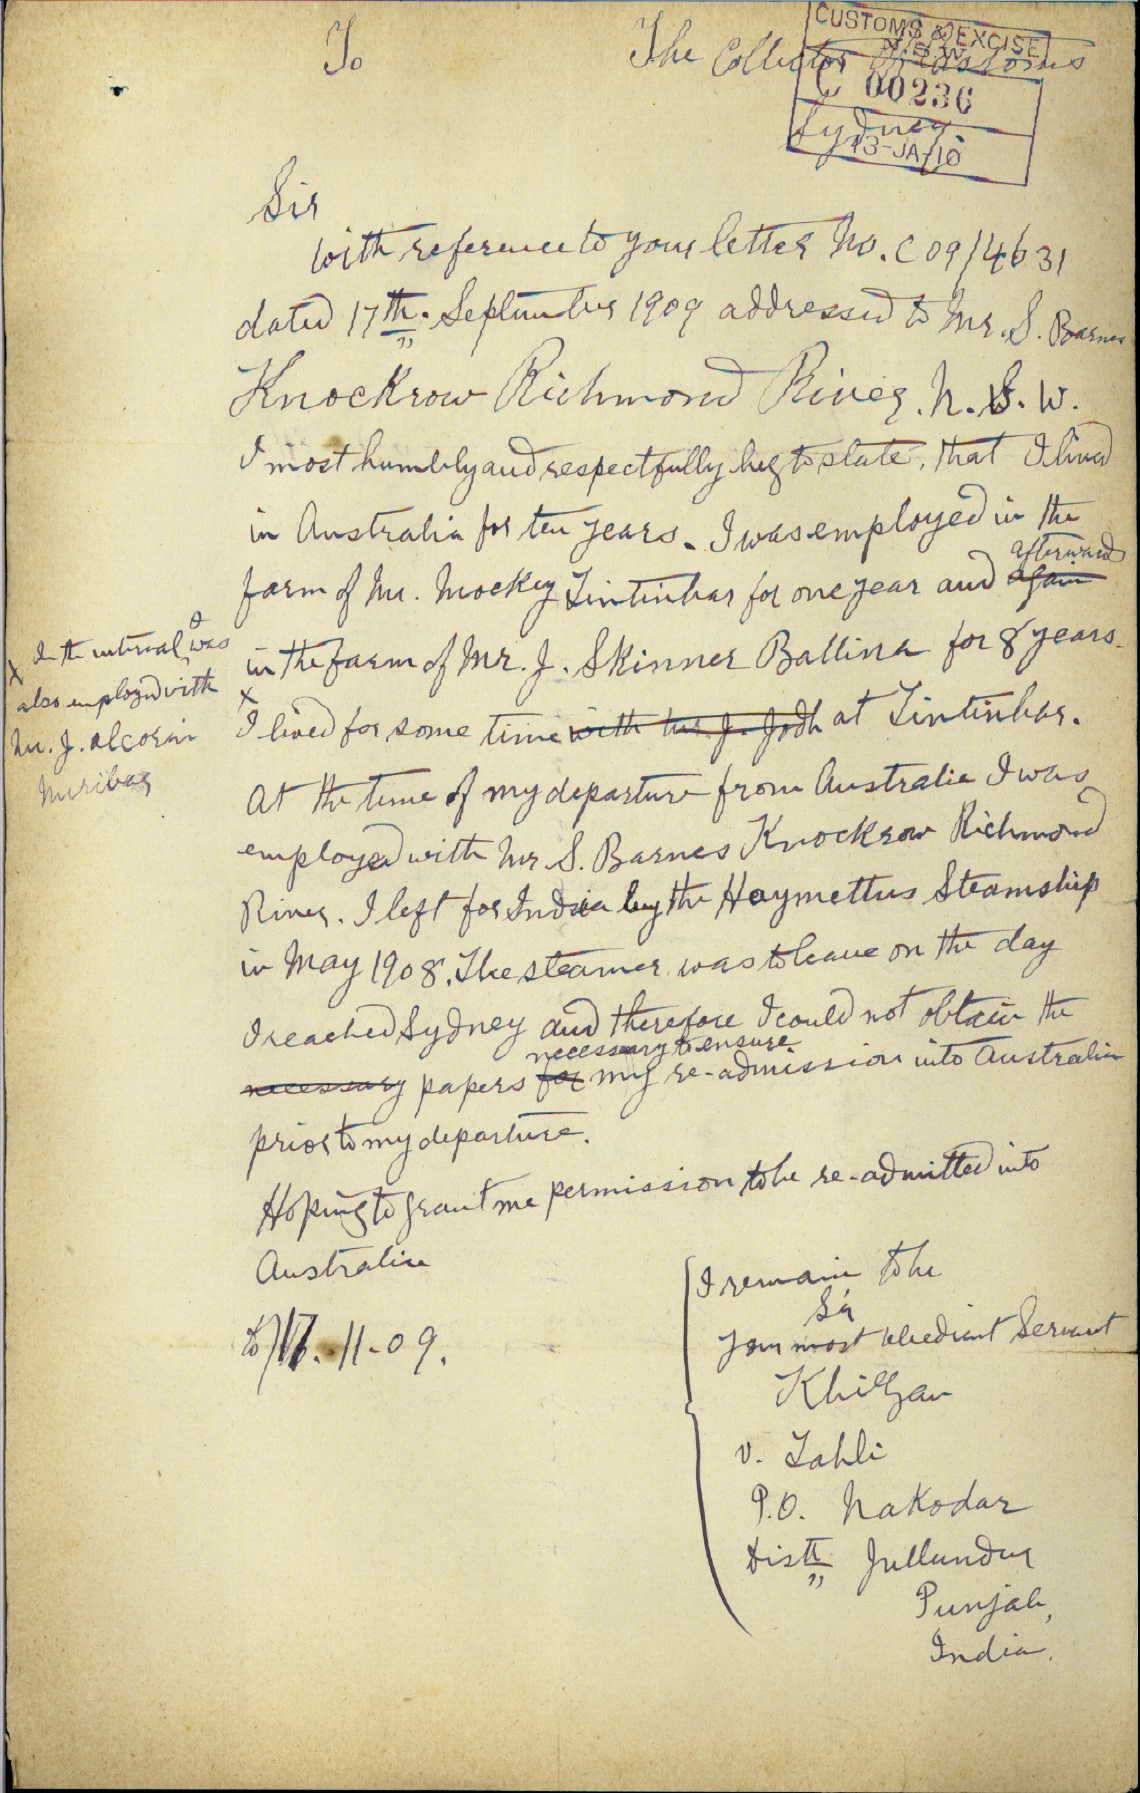 To The Collector of Customs
CUSTOMS & EXCISE
N.S.W.
C 00236
Sydney.
13-JA-10
Sir
with reference to your letter No. C 09/4631
dated 17th. September 1909 addressed to Mr. S. Barnes
Knockrow Richmond River. N. S. W.
I most humbly and respectfully beg to state, that I lived
in Australia for ten years. I was employed in the
afterwards
farm of Mr. Mockey Tintinbar for one year and again
in the farm of Mr. J. Skinner Ballina for 8 years.
x In the interval, I was
also employed with
Mr. J. Alcorin
x
I lived for some time with Mr J. Jodh at Tintinbar.
At the time of my departure from Australia I was
employed with Mr S. Barnes Knockrow Richmond
River. I left for India by the Haymettus Steamship
in May 1908. The steamer was to leave on the day
I reached Sydney and therefore I could not obtain the
necessary to ensure
necessary papers for my re-admission into Australia
prior to my departure.
Hoping to grant me permission to be re-admitted into
Australia
I remain to be
Sir
Your most obedient Servant
17. 11-09.
v. Tahli
P.O. Nakodar
Distt Jullundur
Punjab,
India.